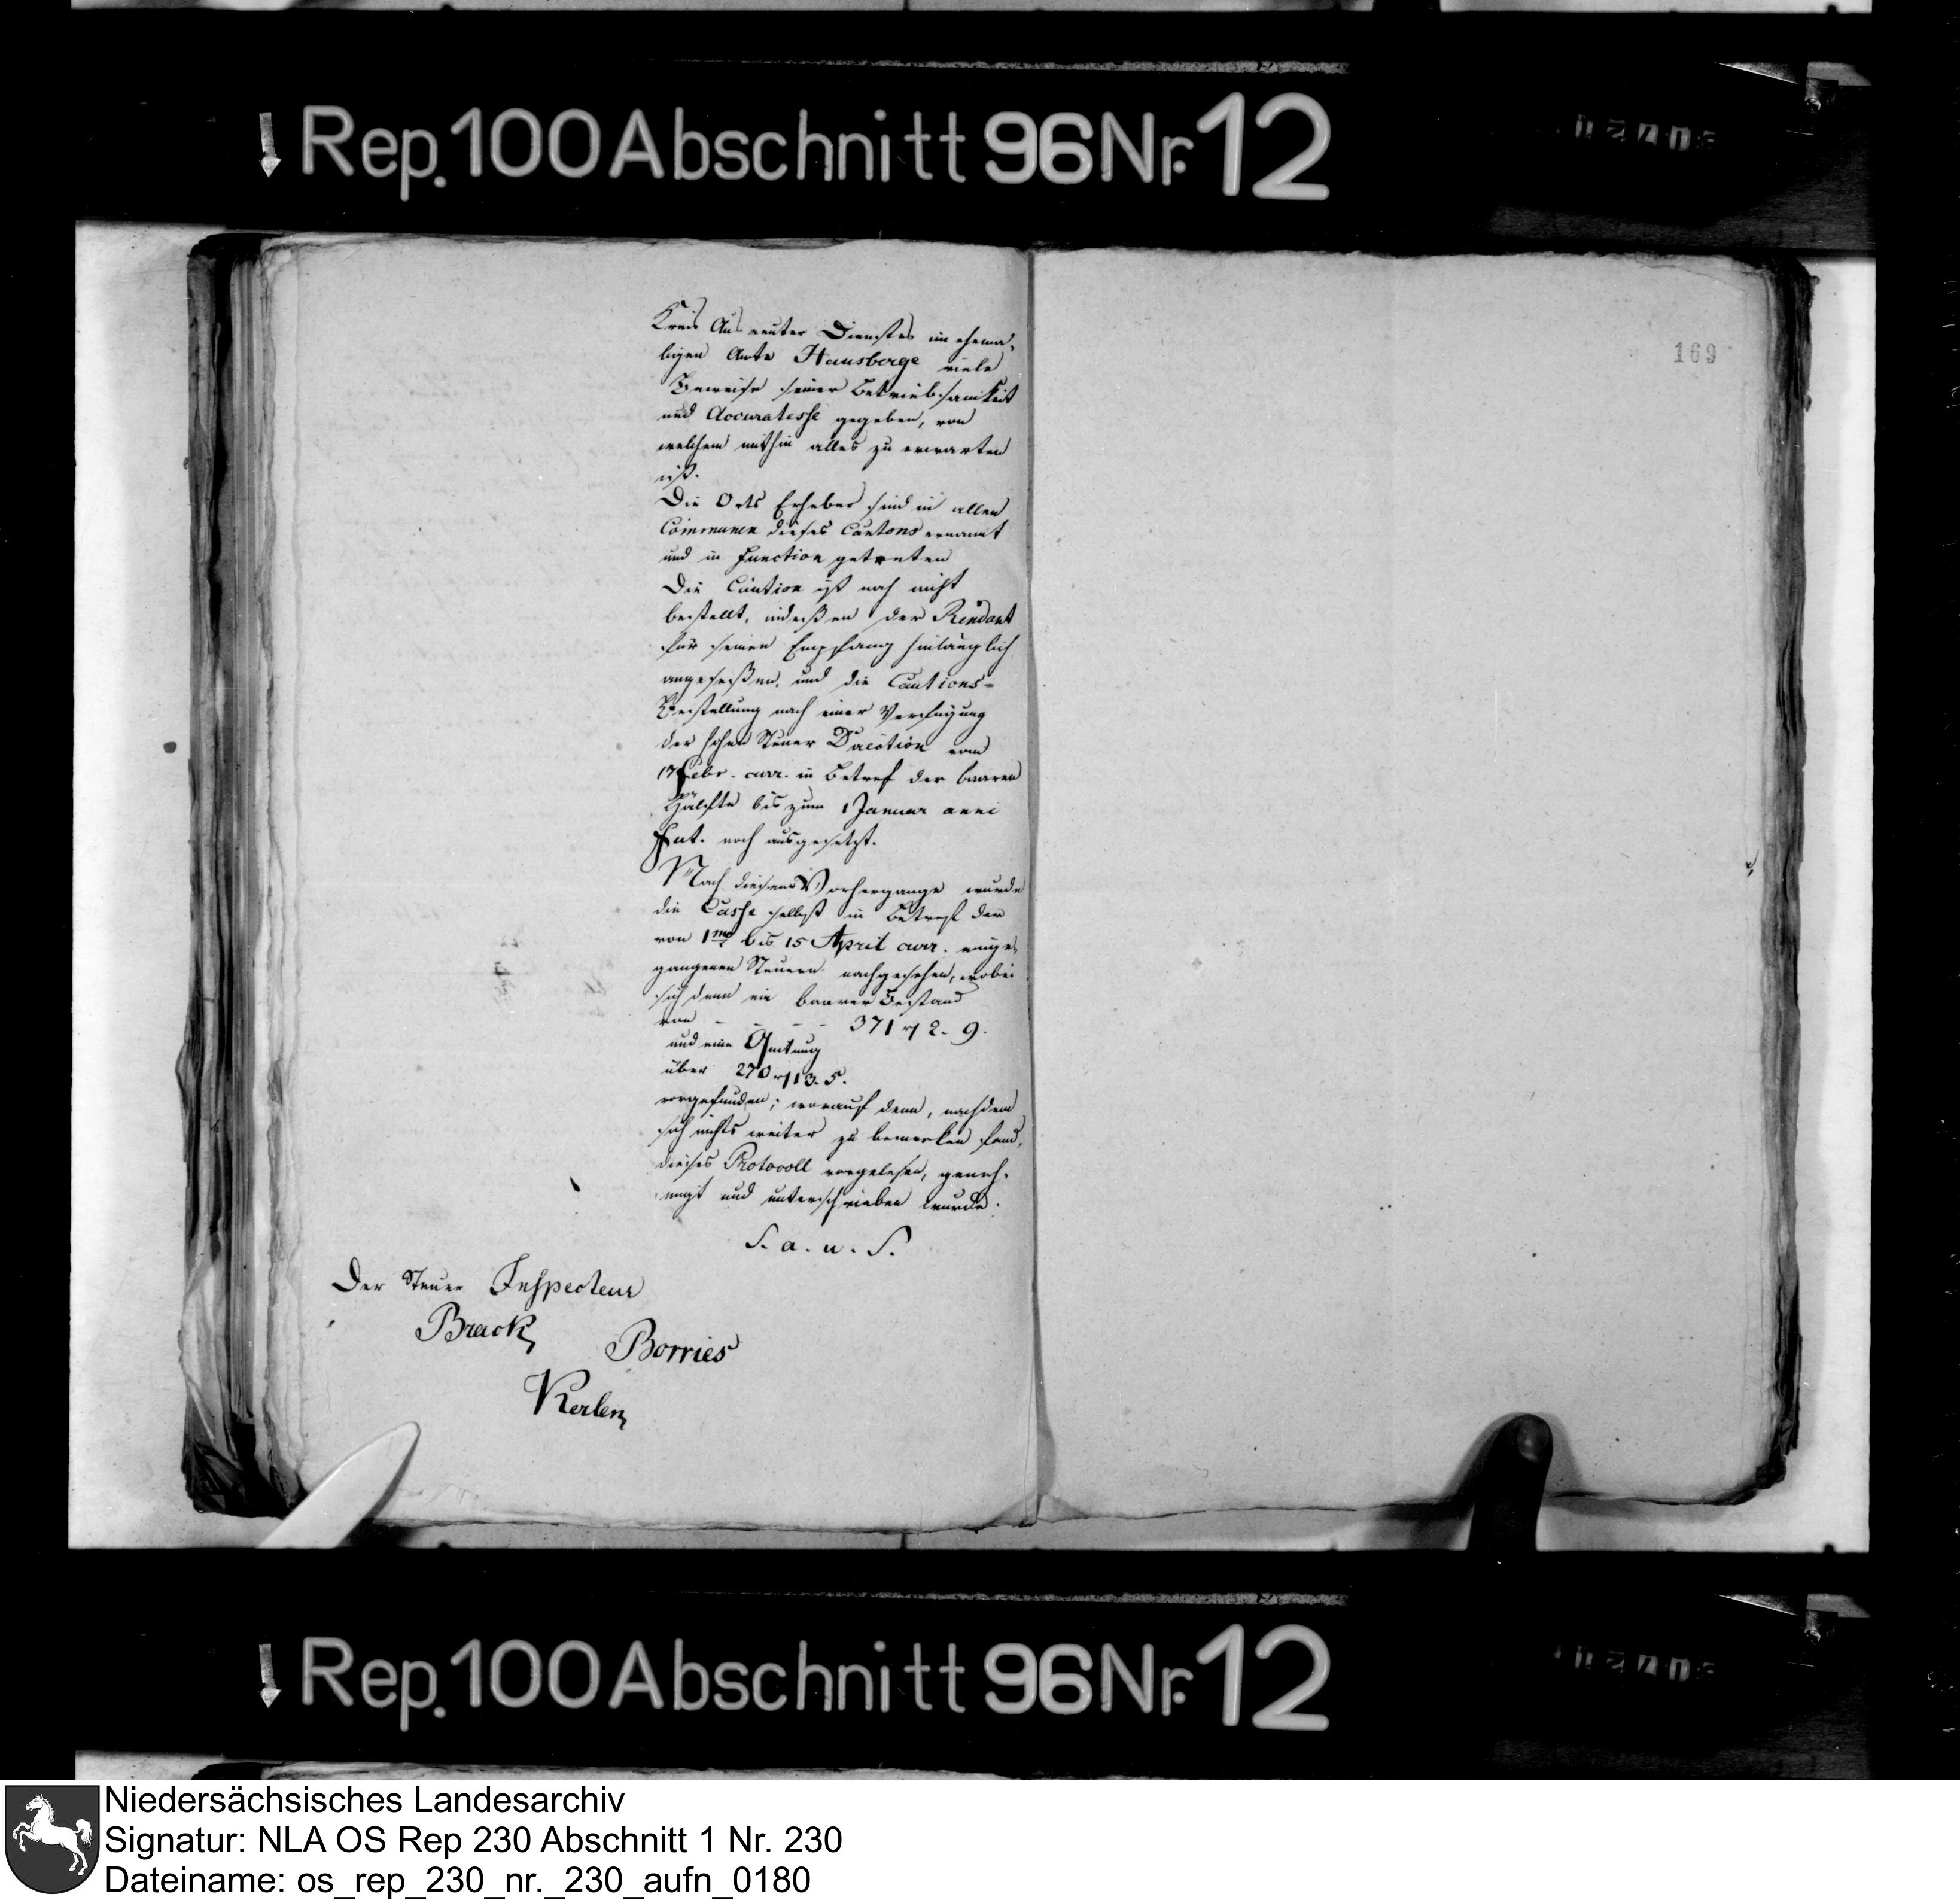 Rep. 100 Abschnitt 96 Nr. 12
169
Kreis Ausreuter Dienstes im ehema-
ligen Amte Hausberge viele
Beweise seiner Betriebsamkeit
und Accuratesse gegeben, von
welchem mithin alles zu erwarten
ist.
Die Orts Erheber sind in allen
Communen dieses Cantons ernannt
und in Function getreten
Die Caution ist noch nicht
bestellt, indeßen der Rendant
für seinen Empfang hinlänglich
angeseßen, und die Cautions-
Bestellung nach einer Verfügung
der hohen Steuer Direction vom
17 Febr. curr. in Betref der baaren
Hälfte bis zum 1 Januar anni
fut. noch ausgesetzt.
Nach diesem Vorhergange wurde
die Casse selbst in Betreff der
von 1mo bis 15 April curr. einge-
gangenen Steuern nachgesehen, wobei
sich denn ein baarer Bestand
von - - - - 371 2. 9.
und eine Quitung
über 270 13. 5.
vorgefunden; worauf denn, nachdem
sich nichts weiter zu bemerken fand,
dieses Protocoll vorgelesen, geneh-
migt und unterschrieben wurde.
S. a. u. S.
Der Steuer Inspecteur
Brack
Borries
Kerlen
Rep. 100 Abschnitt 96 Nr. 12
Niedersächsisches Landesarchiv
Signatur: NLA OS Rep 230 Abschnitt 1 Nr. 230
Dateiname: os_rep_230_nr._230_aufn_0180